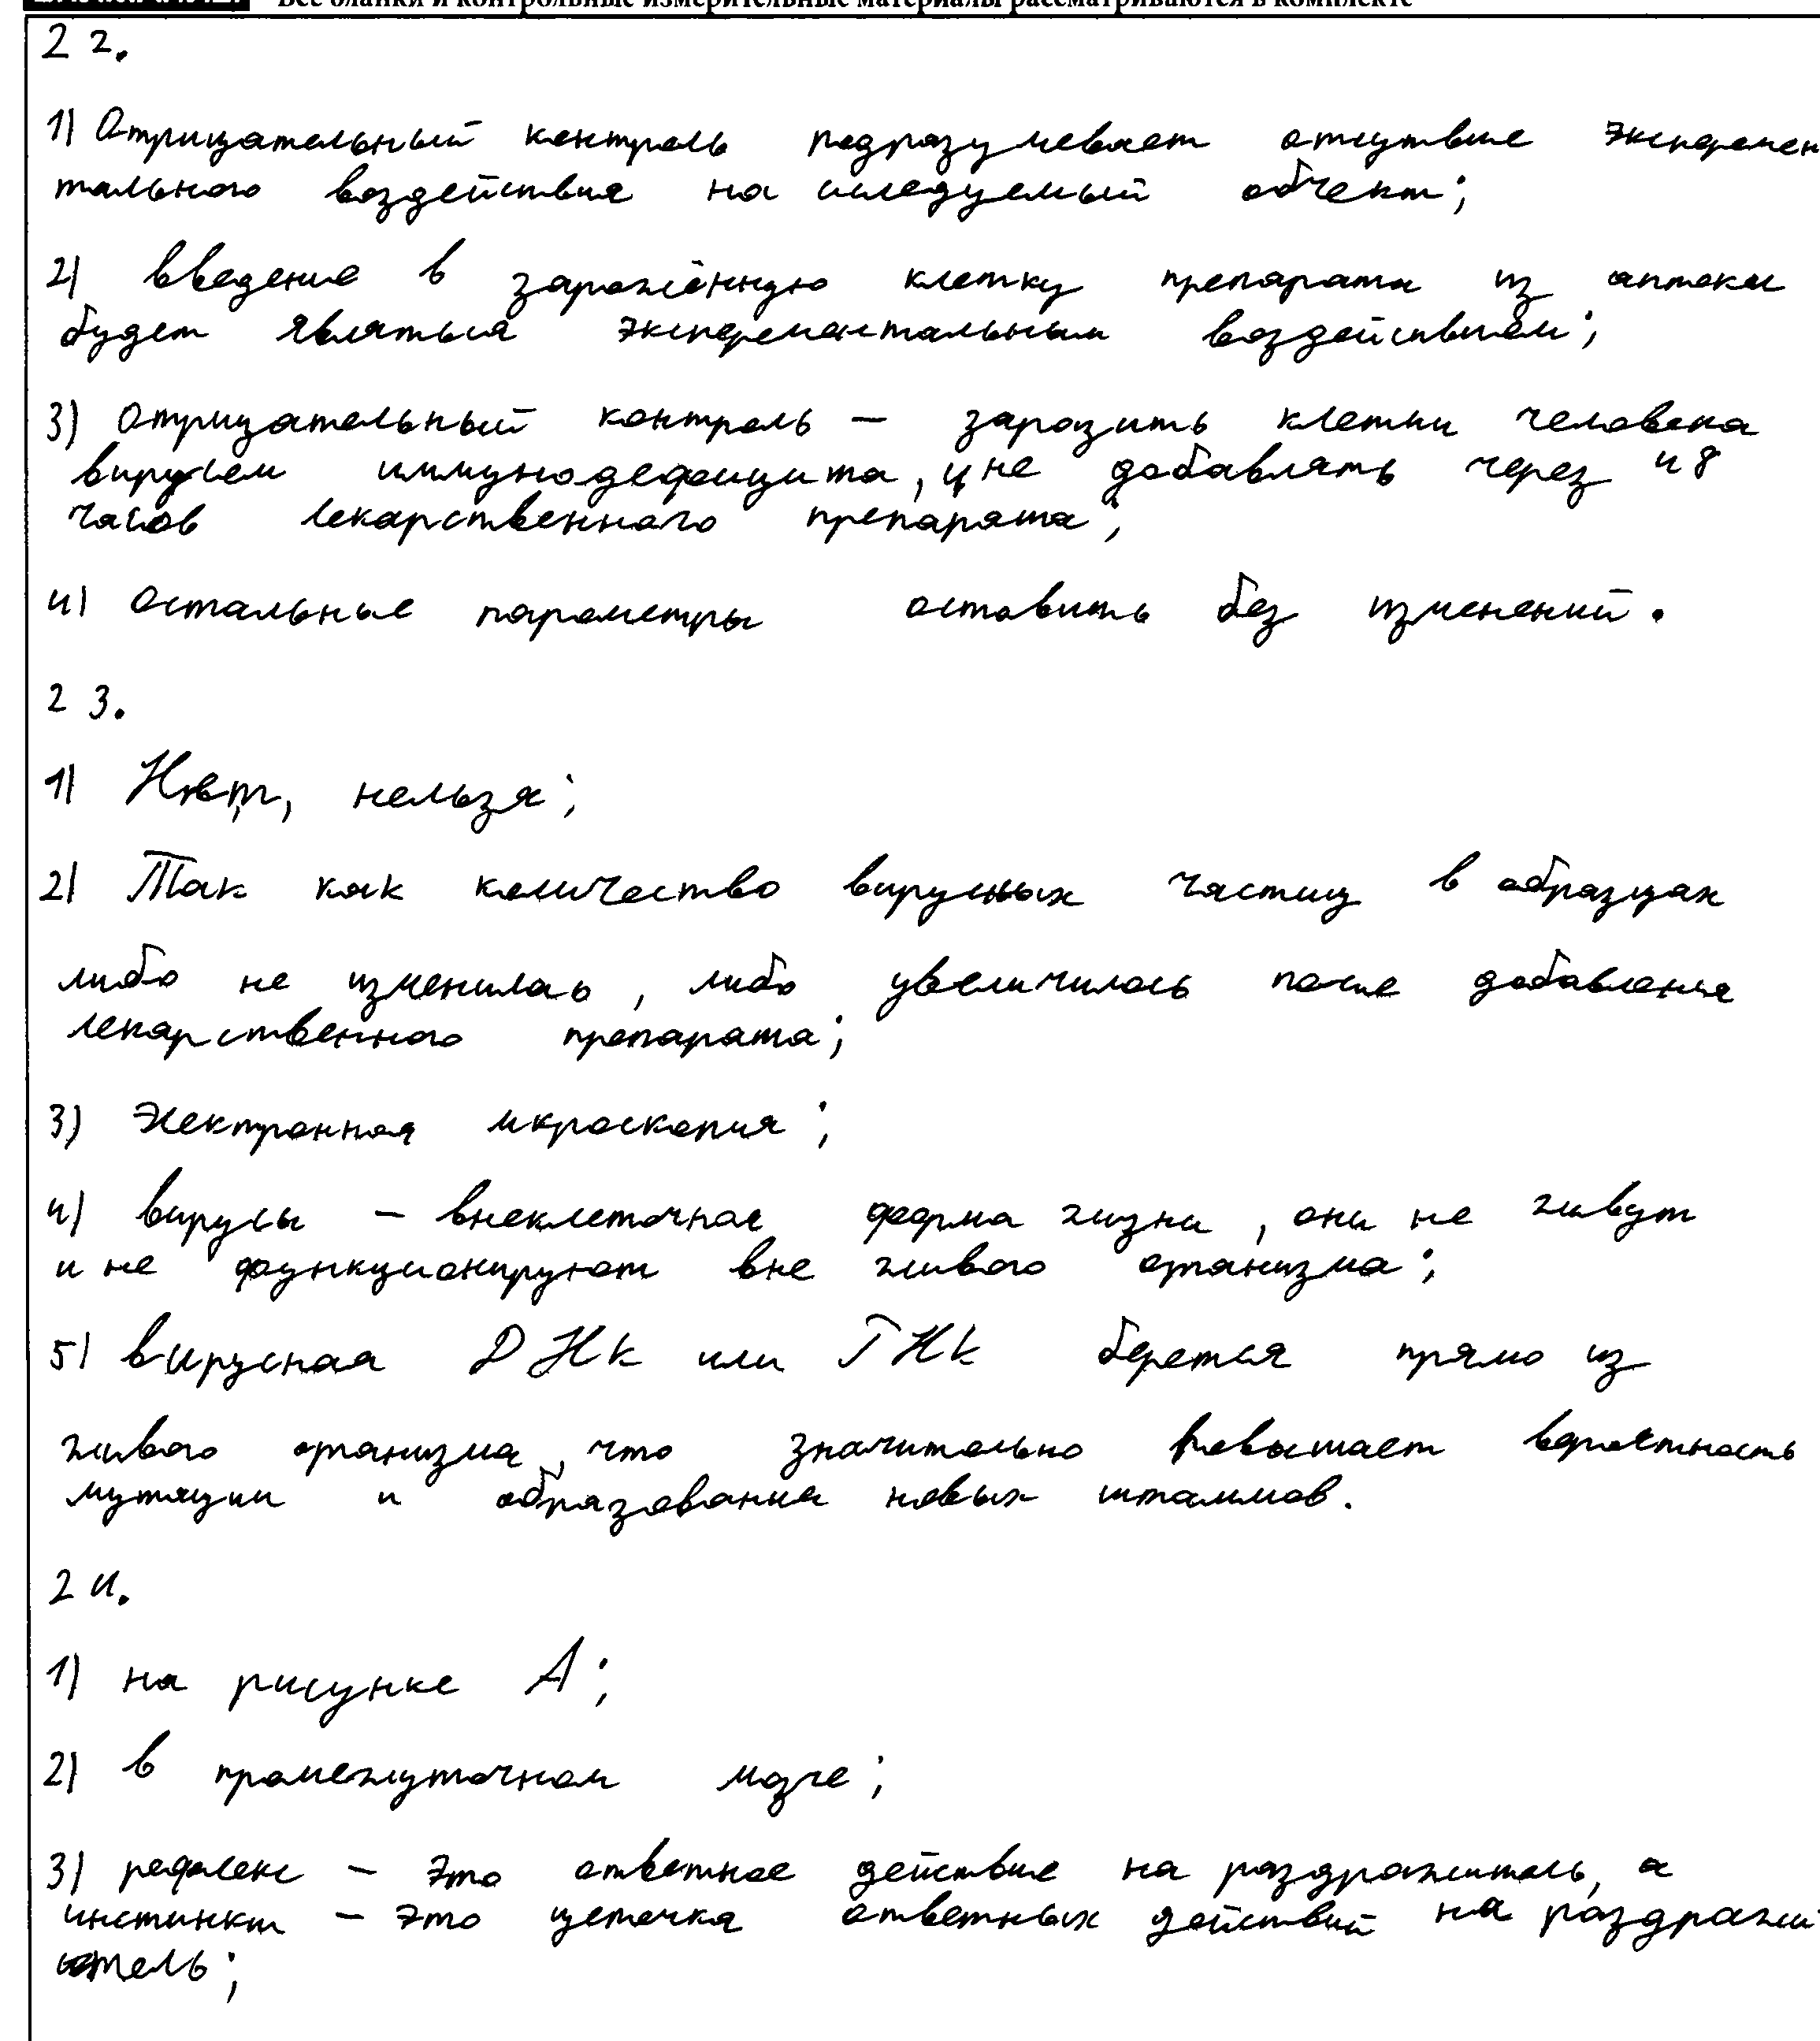 Все бланки и контрольные измерительные материалы рассматриваются в комплекте
22.
1) Отрицательный контроль подразумевает отсутвие эксперемен
тального воздействия на иследуемый обчект;
2) введение в заражённую клетку препарата из аптеки
будет являться эксперементальным воздействием;
3) Отрицательный контроль – заразить клетки человека
вирусем иммунодефицита, и не добавлять через 48
часов лекарственного препарата;
4) Остальные параметры оставить без изменений.
23.
1) Нет, нельзя;
2) Так как количество вирусных частиц в образцах
либо не изменилось, либо увеличилось после добавления
лекарственного препарата;
3) Электронная икроскопия;
4) вирусы – внеклеточная форма жизни, они не живут
и не функционируют вне живого организма;
5) вирусная ДНК или РНК береться прямо из
живого организма, что значительно повышает вероятность
мутации и образования новых штаммов.
24.
1) на рисунке А;
2) в промежуточном мозге;
3) рефлекс – это ответное действие на раздражитель, а
инстинкт – это цепочка ответных действий на раздражи
итель;